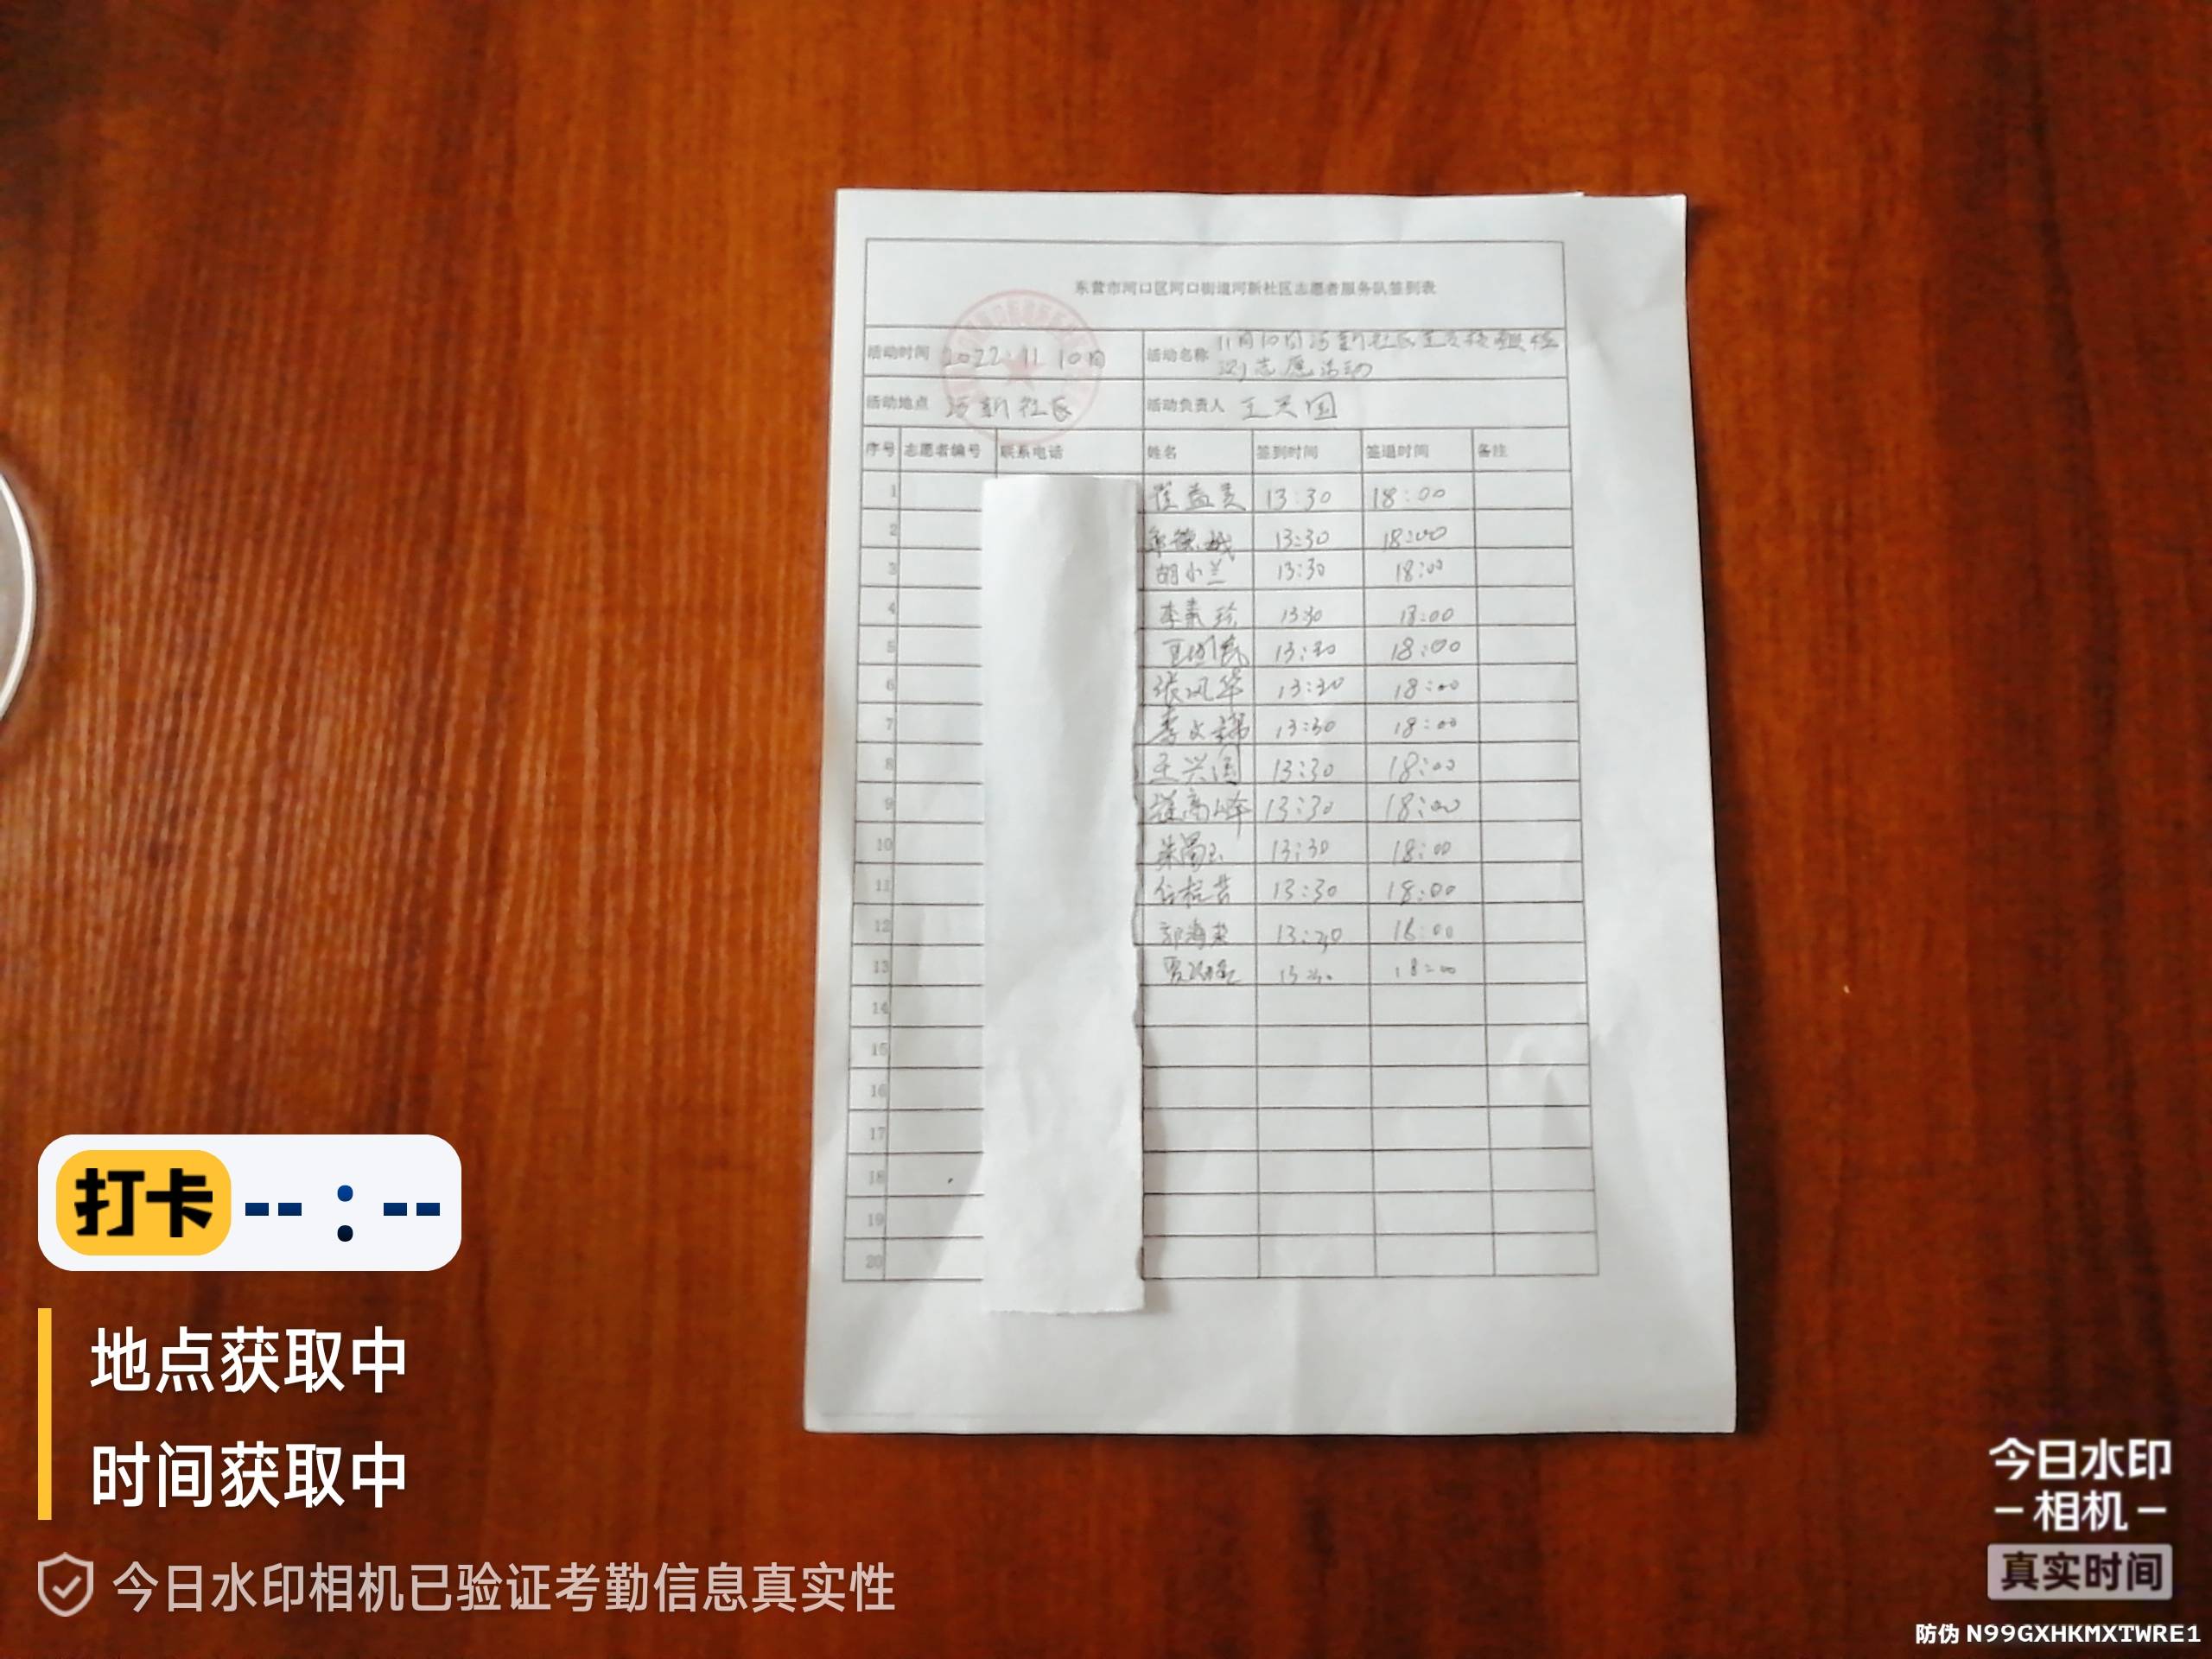 东营市河口区河口街道河新社区志愿者服务队签到表
活动时间 2022.11 10日 活动名称 11月10日河新社区全员核酸检测志愿活动
活动地点 河新社区 活动负责人 王兴国
序号 志愿者编号 联系电话 姓名 签到时间 签退时间 备注
1 崔益美 13:30 18:00
2 13:30 18:00
3 胡小兰 13:30 18:00
4 李素珍 13:30 18:00
5 13:30 18:00
6 张凤华 13:30 18:00
7 李文瑞 13:30 18:00
8 王兴国 13:30 18:00
9 崔高峰 13:30 18:00
10 13:30 18:00
11 13:30 18:00
12 郭海英 13:30 18:00
13 18:00
14
15
16
17
18
19
20
打卡 -- : --
地点获取中
时间获取中
今日水印相机已验证考勤信息真实性
今日水印
相机
真实时间
防伪 N99GXHKMXTWRE1